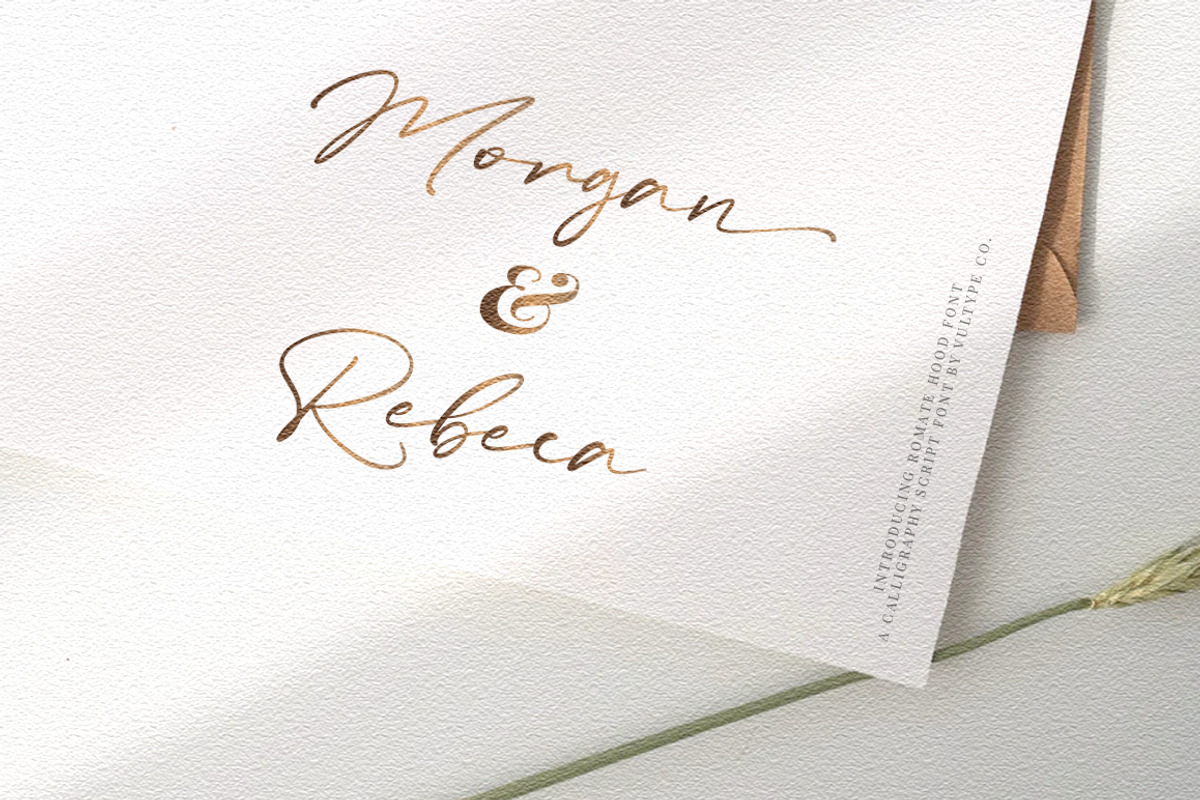 Morgan
&
Rebeca
INTRODUCING ROMATE HOOD FONT
A CALLIGRAPHY SCRIPT FONT BY VULTYPE CO.